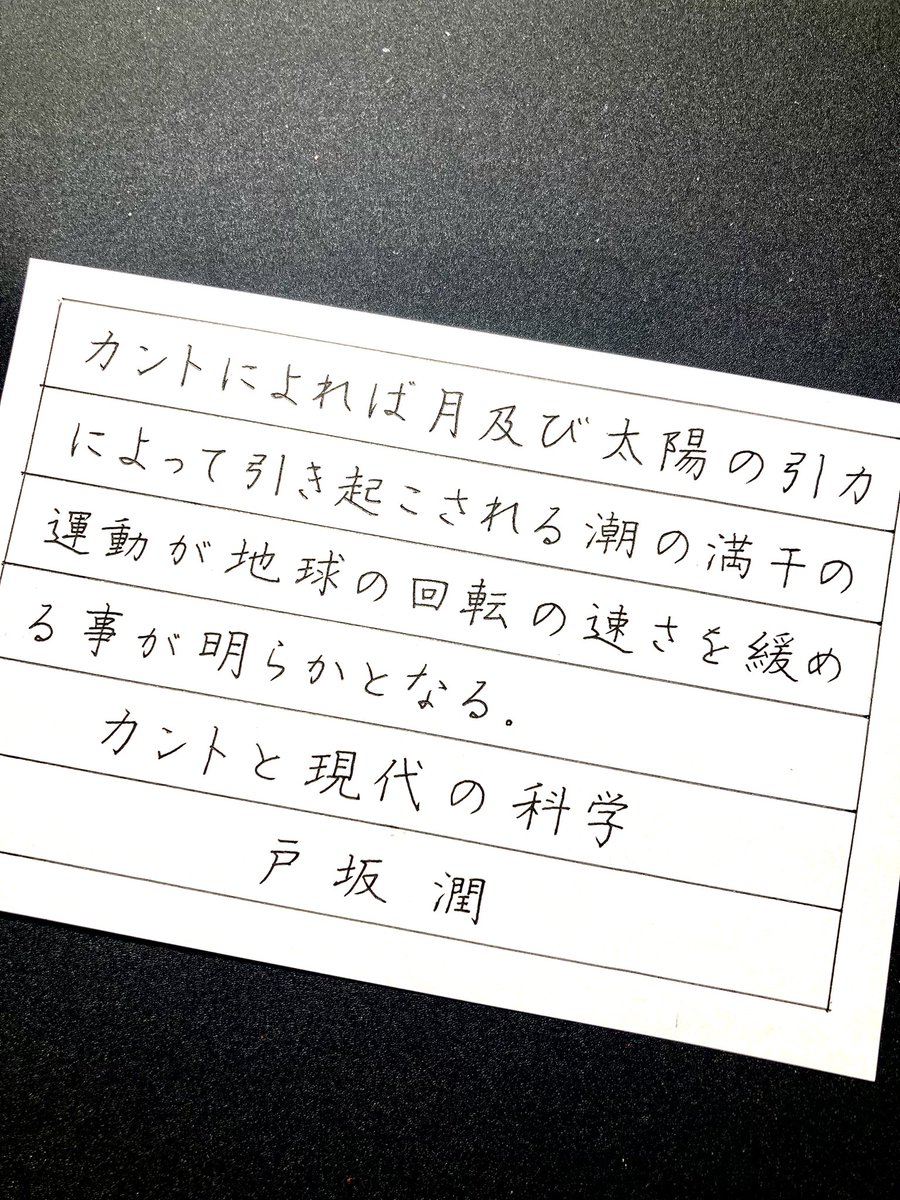 カントによれば月及び太陽の引力
によって引き起こされる潮の満干の
運動が地球の回転の速さを緩め
る事が明らかとなる.
カントと現代の科学
戸坂 潤